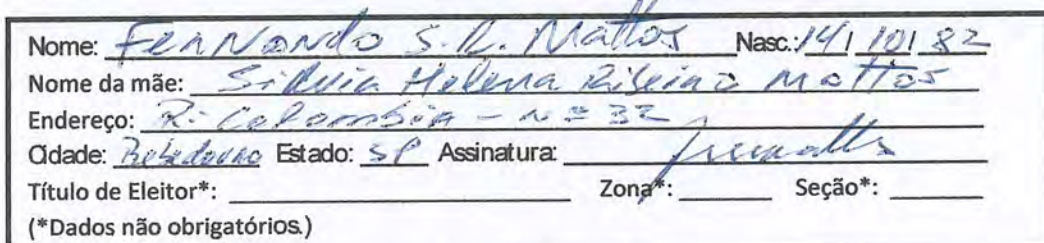 Nome: Fernando S. R. Mattos Nasc.: 14/10/82
Nome da mãe: Silvia Helena Ribeiro Mattos
Endereço: R. Colombia - Nº 32
Cidade: Bebedouro Estado: SP Assinatura:
Título de Eleitor*: Zona*: Seção*:
(*Dados não obrigatórios.)